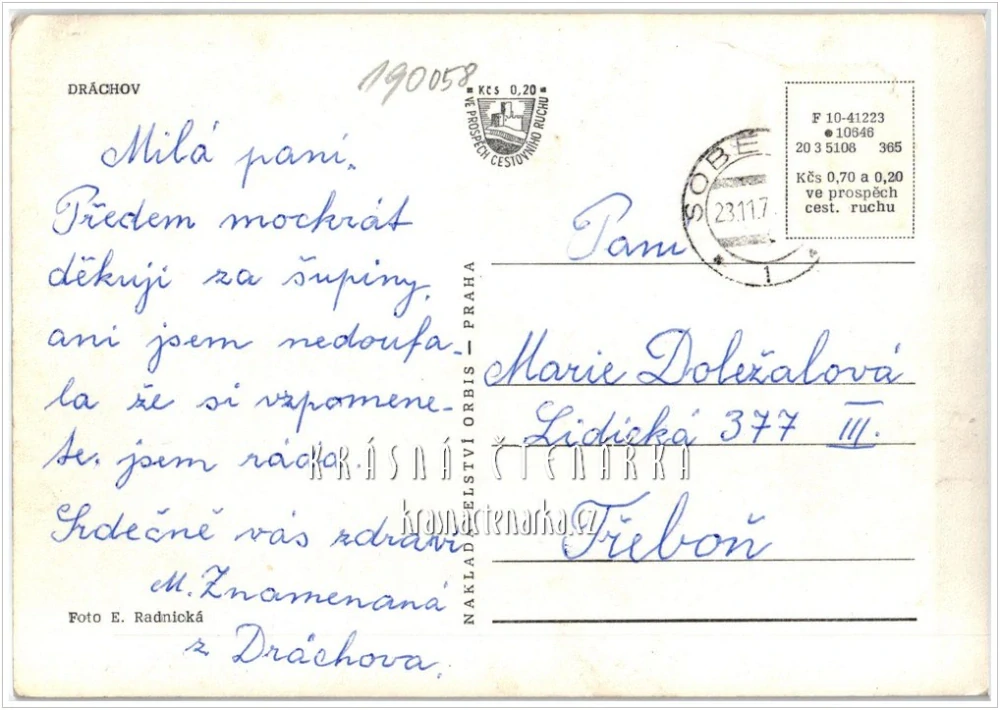 DRÁCHOV
190058
Kčs 0,20
VE PROSPĚCH CESTOVNÍHO RUCHU
F 10-41223
10646
20 3 5108 365
Kčs 0,70 a 0,20
ve prospěch
cest. ruchu
SOBĚ
23.11.7
1
Milá paní.
Předem mockrát
děkuji za šupiny,
ani jsem nedoufa-
la že si vzpomene-
te. jsem ráda.
Srdečně vás zdraví
M. Znamenaná
z Dráchova.
Foto E. Radnická
NAKLADATELSTVÍ ORBIS — PRAHA
Paní
Marie Doležalová
Lidická 377 III.
Třeboň
KRÁSNÁ ČTENÁŘKA
krasnactenarka.cz